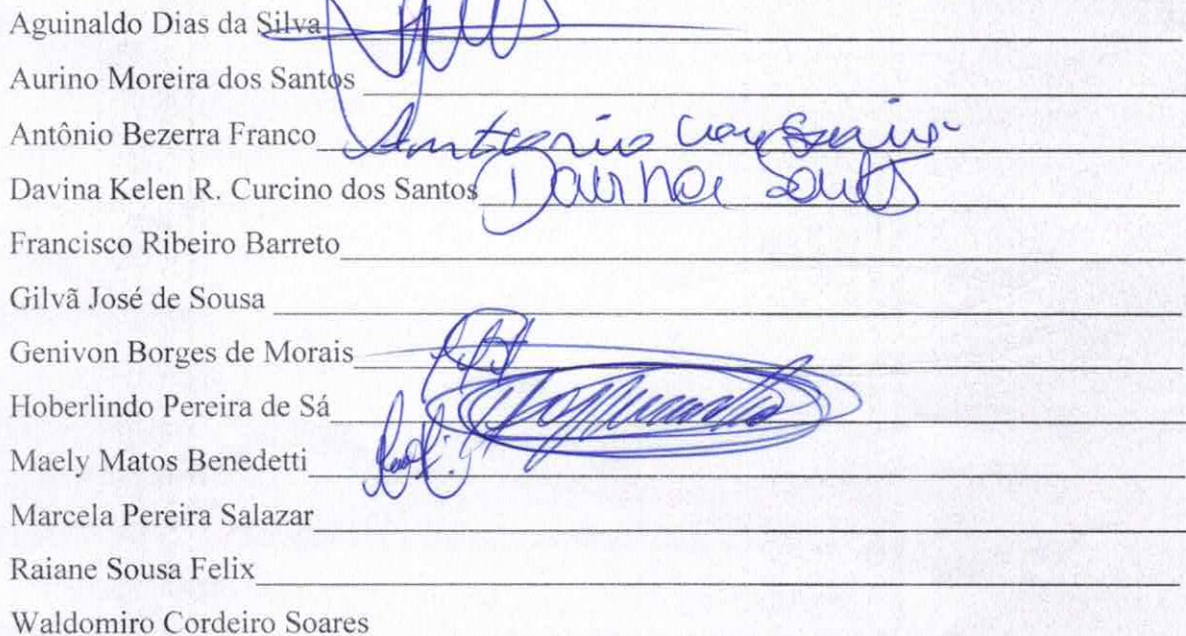 Aguinaldo Dias da Silva
Aurino Moreira dos Santos
Antônio Bezerra Franco
Davina Kelen R. Curcino dos Santos Davina Santos
Francisco Ribeiro Barreto
Gilvã José de Sousa
Genivon Borges de Morais
Hoberlindo Pereira de Sá
Maely Matos Benedetti
Marcela Pereira Salazar
Raiane Sousa Felix
Waldomiro Cordeiro Soares